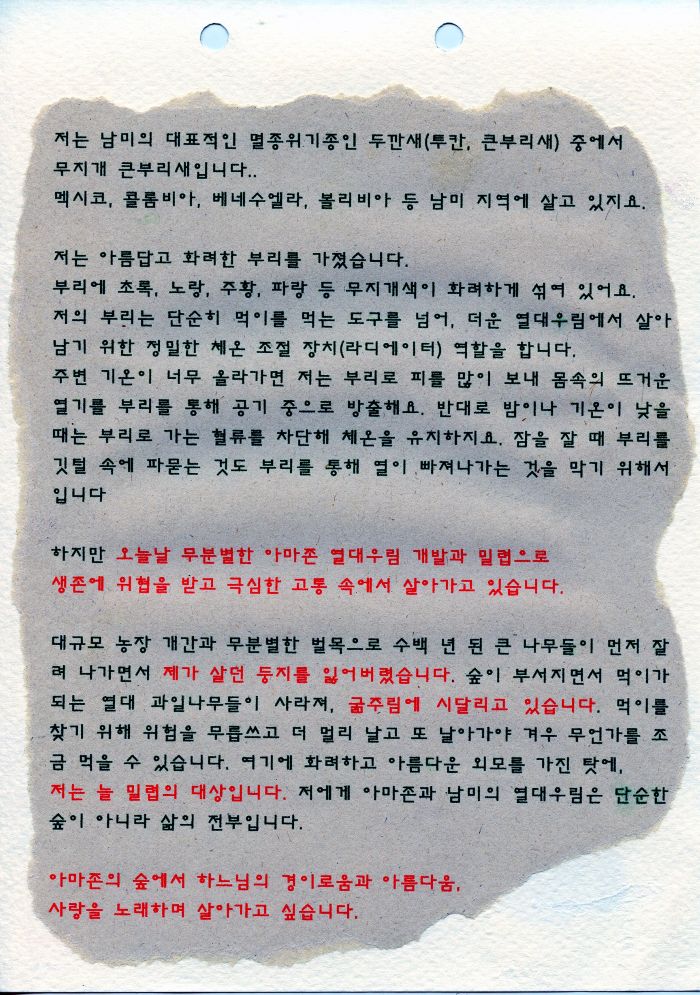 저는 남미의 대표적인 멸종위기종인 두깐새(투칸, 큰부리새) 중에서
무지개 큰부리새입니다..
멕시코, 콜롬비아, 베네수엘라, 볼리비아 등 남미 지역에 살고 있지요.
저는 아름답고 화려한 부리를 가졌습니다.
부리에 초록, 노랑, 주황, 파랑 등 무지개색이 화려하게 섞여 있어요.
저의 부리는 단순히 먹이를 먹는 도구를 넘어, 더운 열대우림에서 살아
남기 위한 정밀한 체온 조절 장치(라디에이터) 역할을 합니다.
주변 기온이 너무 올라가면 저는 부리로 피를 많이 보내 몸속의 뜨거운
열기를 부리를 통해 공기 중으로 방출해요. 반대로 밤이나 기온이 낮을
때는 부리로 가는 혈류를 차단해 체온을 유지하지요. 잠을 잘 때 부리를
깃털 속에 파묻는 것도 부리를 통해 열이 빠져나가는 것을 막기 위해서
입니다
하지만 오늘날 무분별한 아마존 열대우림 개발과 밀렵으로
생존에 위협을 받고 극심한 고통 속에서 살아가고 있습니다.
대규모 농장 개간과 무분별한 벌목으로 수백 년 된 큰 나무들이 먼저 잘
려 나가면서 제가 살던 둥지를 잃어버렸습니다. 숲이 부서지면서 먹이가
되는 열대 과일나무들이 사라져, 굶주림에 시달리고 있습니다. 먹이를
찾기 위해 위험을 무릅쓰고 더 멀리 날고 또 날아가야 겨우 무언가를 조
금 먹을 수 있습니다. 여기에 화려하고 아름다운 외모를 가진 탓에,
저는 늘 밀렵의 대상입니다. 저에게 아마존과 남미의 열대우림은 단순한
숲이 아니라 삶의 전부입니다.
아마존의 숲에서 하느님의 경이로움과 아름다움,
사랑을 노래하며 살아가고 싶습니다.